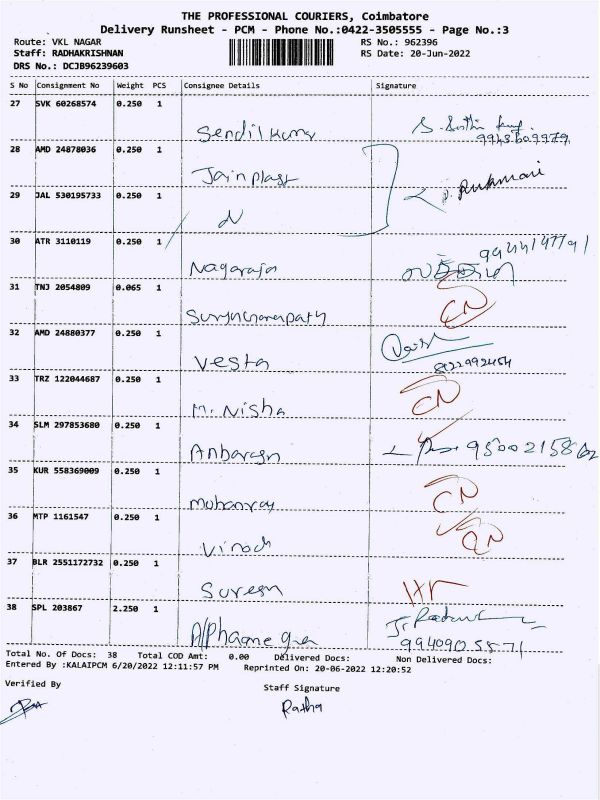 THE PROFESSIONAL COURIERS, Coimbatore
Delivery Runsheet - PCM - Phone No.:0422-3505555 - Page No.:3
Route: VKL NAGAR RS No.: 962396
Staff: RADHAKRISHNAN RS Date: 20-Jun-2022
DRS No.: DCJB96239603
S No Consignment No Weight PCS Consignee Details Signature
27 SVK 60268574 0.250 1
Sendil Kumar
28 AMD 24878036 0.250 1
Jain plast
29 JAL 530195733 0.250 1
30 ATR 3110119 0.250 1
Nagaraja
31 TNJ 2054809 0.065 1
CN
32 AMD 24880377 0.250 1
Vesta
33 TRZ 122044687 0.250 1
M. Nisha CN
34 SLM 297853680 0.250 1
35 KUR 558369009 0.250 1
Mohanraj CN
36 MTP 1161547 0.250 1
Vinod CN
37 BLR 2551172732 0.250 1
Suresh
38 SPL 203867 2.250 1
9940905571
Total No. Of Docs: 38 Total COD Amt: 0.00 Delivered Docs: Non Delivered Docs:
Entered By :KALAIPCM 6/20/2022 12:11:57 PM Reprinted On: 20-06-2022 12:20:52
Verified By Staff Signature
Ratha